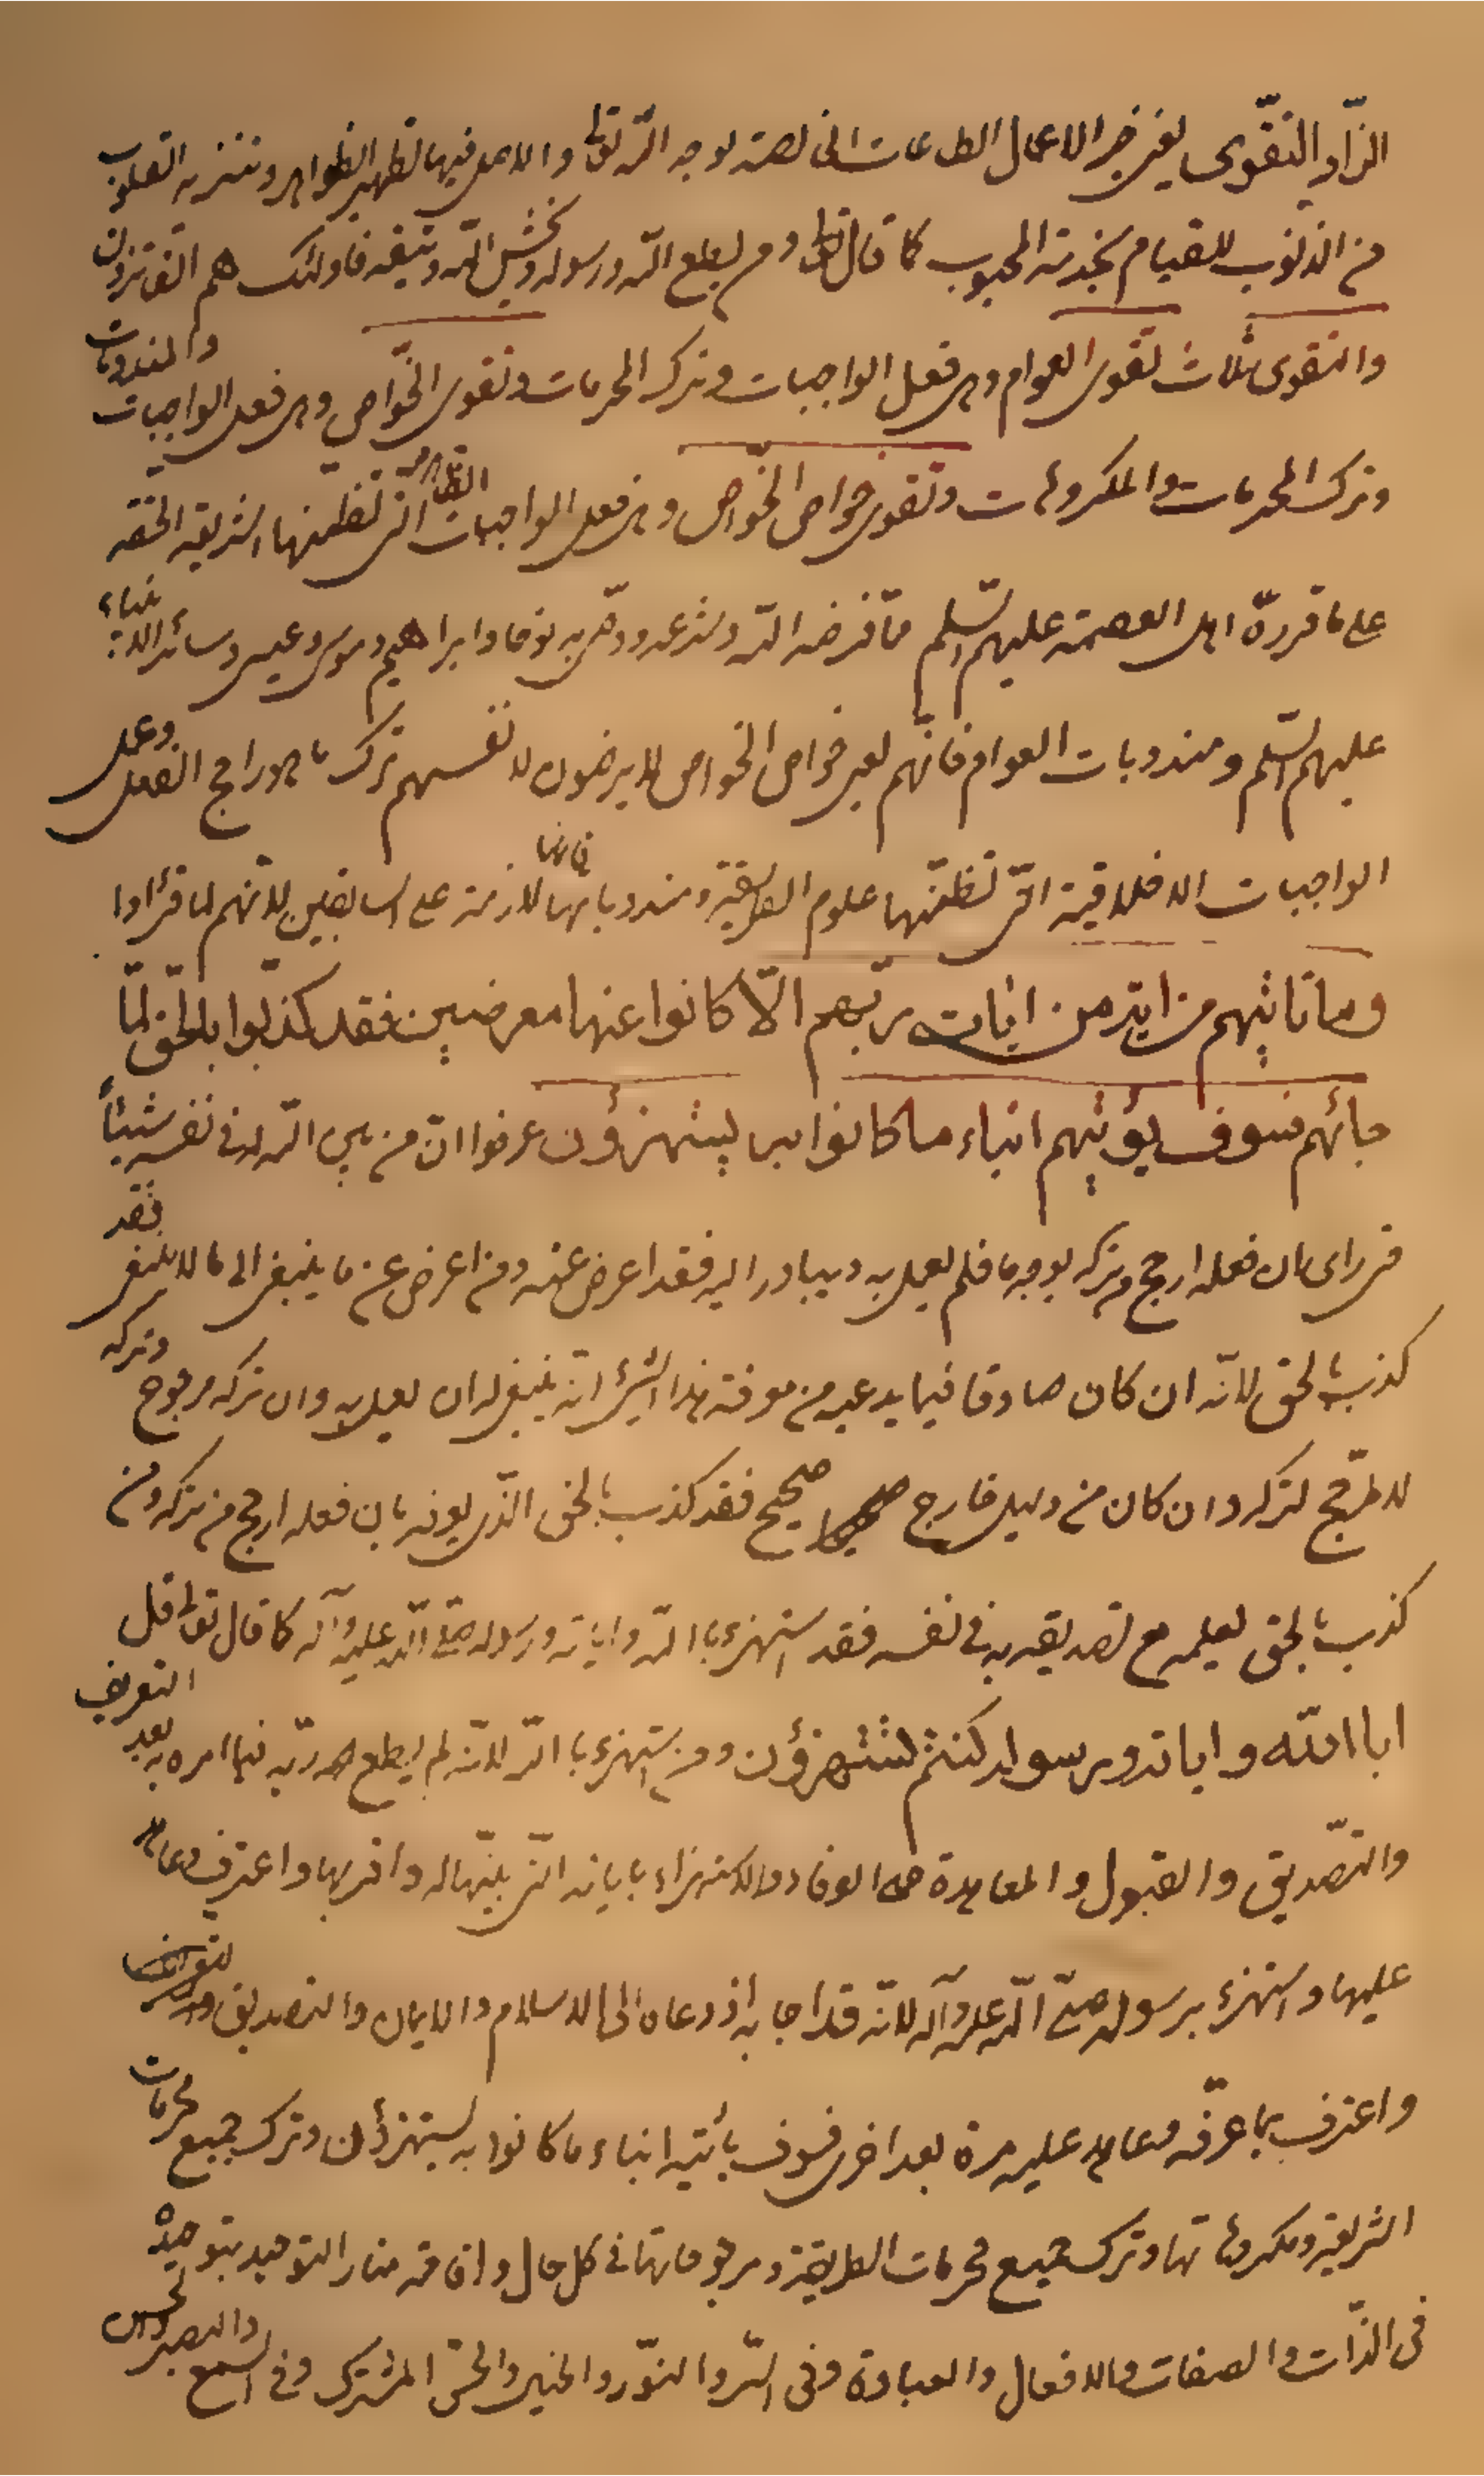 الزّاد التقوى يعنى خير الاعمال الطاعات الخالصة لوجه اللّه تعالى والاصل فيها تطهير الظواهر وتنزيه القلوب
من الذنوب للقيام بخدمة المحبوب كما قال تعالى ومن يطع اللّه ورسوله ويخش اللّه ويتقه فاولئك هم الفائزون
والتقوى ثلاث تقوى العوام وهى فعل الواجبات وترك المحرمات وتقوى الخواص وهى فعل الواجبات والمندوبات
وترك المحرمات والمكروهات وتقوى خواص الخواص وهى فعل الواجبات الظاهرة التى تضمنتها الشريعة الحقة
على ما قرره اهل العصمة عليهم السّلم مما فرضه اللّه وشرعه ووصّى به نوحا وابراهيم وموسى وعيسى وسائر الانبياء
عليهم السّلم ومندوبات العوام فانهم يعنى خواص الخواص لا يرضون لانفسهم ترك ما هو راجح الفعل وعمل
الواجبات الاخلاقية التى تضمنتها علوم الطريقة ومندوباتها فانها لازمة على السابقين لانهم لما قرأوا
وما تاتيهم من اية من ايات ربّهم الّا كانوا عنها معرضين فقد كذّبوا بالحق لمّا
جائهم فسوف يؤتيهم انباء ما كانوا به يستهزؤن عرفوا ان من بين اللّه له فى نفسه شيئاً
فراى بان فعله ارجح وتركه بوجه ما فلم يعمل به ويبادر اليه فقد اعرض عنه ومن اعرض عن ما ينبغى الى ما لا ينبغى فقد
كذب بالحق لانه ان كان صادقا فيما يدعيه من معرفة هذا الشئ انه ينبغى له ان يعمل به وان تركه مرجوح وتركه
لا لمرجّح لتركه وان كان من دليل خارج صحيح فقد كذب بالحق الذى يعرفه بان فعله ارجح من تركه ومن
كذب بالحق بعلمه مع تصديقه به فى نفسه فقد استهزء باللّه واياته ورسوله صلى اللّه عليه وآله كما قال تعالى قل
ابا اللّه واياته ورسوله كنتم تستهزؤن ومن استهزء باللّه لانه لم يطع ربّه فيما امره به بعد التعريف
والتصديق والقبول والمعاهدة على الوفاء والاستهزاء باياته التى بيّنها له واقر بها واعترف وعاهد
عليها واستهزء برسوله صلّى اللّه عليه وآله لانه قد اجابه اذ دعاه الى الاسلام والايمان والتصديق
واعترف بما عرّفه وعاهد عليه مرة بعد اخرى فسوف يأتيه انباء ما كانوا به يستهزؤن وترك جميع محرمات
الشريعة ومكروهاتها وترك جميع محرمات الطريقة ومرجوحاتها فى كل حال واقامة منار التوحيد بتوحيده
فى الذّات والصفات والافعال والعبادة وفى السّر والنوّر والخير والحس المشترك وفى السمع والبصر